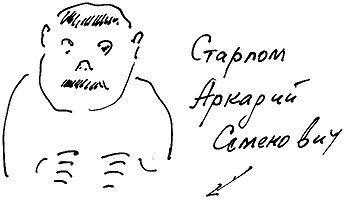 Старпом
Аркадий
Семенович